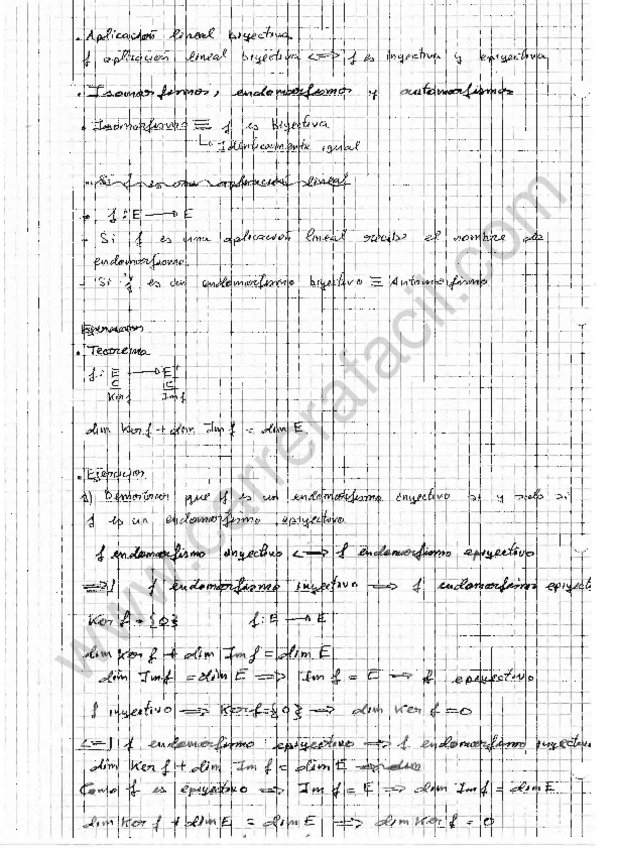 . Aplicación lineal biyectiva
f aplicación lineal biyectiva <=> f es inyectiva y epiyectiva
. Isomorfismos, endomorfismos y automorfismos
. Isomorfismos ≡ f es biyectiva
Identicamente igual
. Si f es una aplicación lineal
. f : E → E
- Si f es una aplicación lineal recibe el nombre de
endomorfismo
- Si f es un endomorfismo biyectivo ≡ Automorfismo
. Teorema
f : E → E'
Ker f Im f
dim Ker f + dim Im f = dim E
. Ejercicios
1) Demostrar que f es un endomorfismo inyectivo si y solo si
f es un endomorfismo epiyectivo
f endomorfismo inyectivo <=> f endomorfismo epiyectivo
=>| f endomorfismo inyectivo => f endomorfismo epiyecti
Ker f = {0} f : E → E
dim Ker f + dim Im f = dim E
dim Im f = dim E => Im f = E => f epiyectivo
f inyectivo => Ker f = {0} => dim Ker f = 0
<=| f endomorfismo epiyectivo => f endomorfismo inyectivo
dim Ker f + dim Im f = dim E
Como f es epiyectivo => Im f = E => dim Im f = dim E
dim Ker f + dim E = dim E => dim Ker f = 0
www.carrerafacil.com